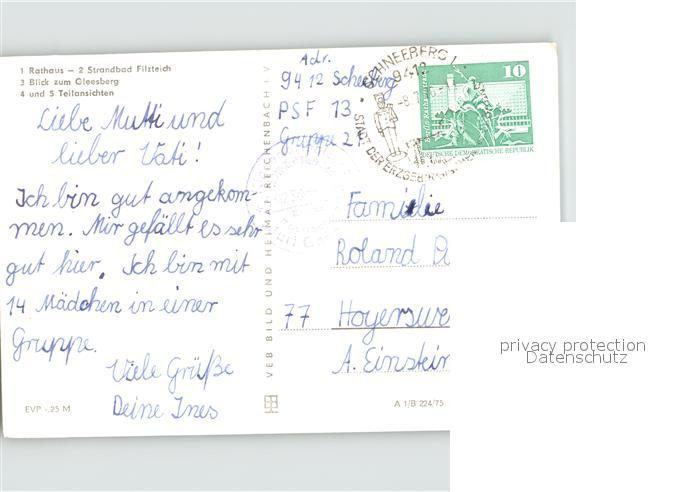 1 Rathaus – 2 Strandbad Filzteich
3 Blick zum Gleesberg
4 und 5 Teilansichten
Liebe Mutti und
lieber Vati!
Ich bin gut angekom-
men. Mir gefällt es sehr
gut hier. Ich bin mit
14 Mädchen in einer
Gruppe.
Viele Grüße
Deine Ines
EVP -.25 M
VEB BILD UND HEIMAT REICHENBACH I V
Adr.
9412 Schneeberg
PSF 13
Gruppe 2
SCHNEEBERG 1
9412
STADT DER ERZGEBIRGISCHEN
10
DEUTSCHE DEMOKRATISCHE REPUBLIK
Familie
Roland
77 Hoyerswe
A. Einstein
A 1/B 224/75
privacy protection
Datenschutz